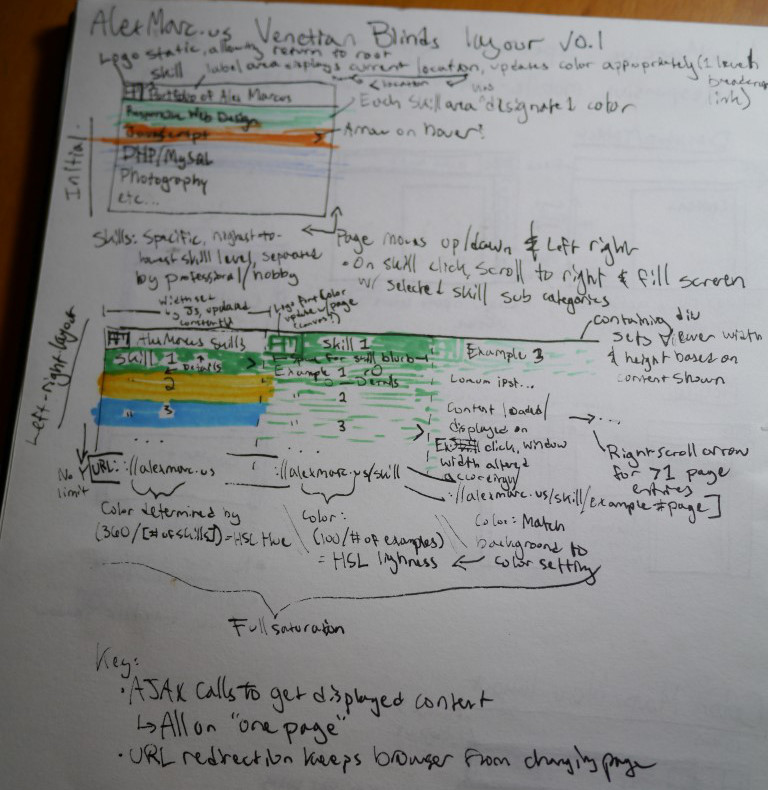 AlexMarc.us Venetian Blinds layour v0.1
Logo static, allowing return to root
Skill label area displays current location, updates color appropriately (1 level breadcrumb link)
location
Portfolio of Alex Marcus
Each skill area has designated 1 color
Responsive Web Design
Javascript
Arrow on hover?
PHP/MySQL
Photography
etc...
Initial
Skills: Specific, highest-to-
lowest skill level, separated
by professional/hobby
Page moves up/down & Left right
• On skill click, scroll to right & fill screen
w/ selected skill sub categories
Width set
by JS, updated
constantly
Logo font color
update w/page
(canvas?)
containing div
sets viewer width
& height based on
content shown
Left-right layout
Alex Marcus Skills
Skill 1
Example 3
Skill 1
Details
Space for skill blurb
Example 1
Details
2
" 2
" 3
" 3
Lorum ipst...
Content loaded/
displayed on
click, window
width altered
accordingly
...
Right scroll arrow
for >1 page
entries
No limit
URL: ://alexmarc.us
://alexmarc.us/skill
://alexmarc.us/skill/example#page]
Color determined by
(360/[# of skills]) = HSL Hue
Color:
(100/# of examples)
= HSL lighness
Color: Match
background to
color setting
Full saturation
Key:
• AJAX calls to get displayed content
↳ All on "one page"
• URL redirection keeps browser from changing page